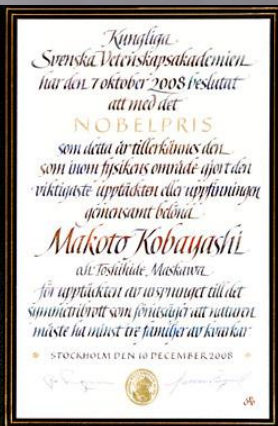 Kungliga
Svenska Vetenskapsakademien
har den 7 oktober 2008 beslutat
att med det
NOBELPRIS
som detta år tillerkännes den
som inom fysikens område gjort den
viktigaste upptäckten eller uppfinningen
gemensamt belöna
Makoto Kobayashi
och Toshihide Maskawa
för upptäckten av ursprunget till det
symmetribrott som förutsäger att naturen
måste ha minst tre familjer av kvarkar
STOCKHOLM DEN 10 DECEMBER 2008